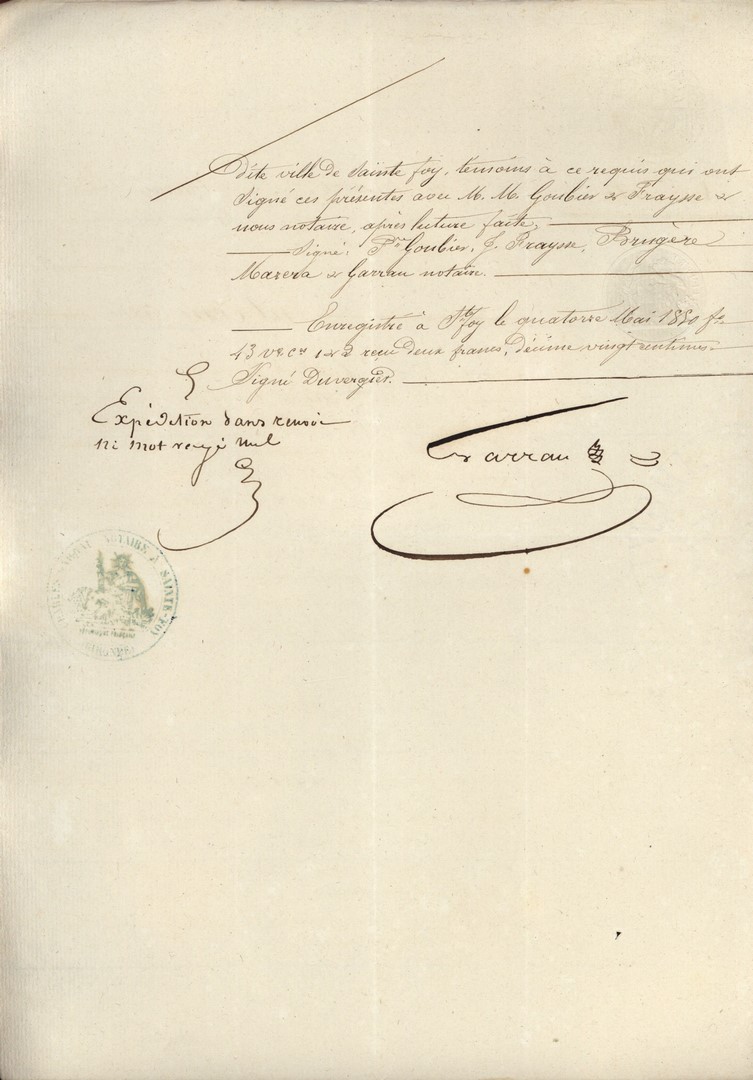 dite ville de Sainte foy, temoins à ce requis qui ont
Signé ces présentes avec M. M. Goubier & Fraysse &
nous notaire, après lecture faite,
Signé: Goubier, J. Fraysse, Brugère
Mazera & Garrau notaire.
Enregistré à Ste foy le quatorze Mai 1850 fo
43 vo cs 1 & 2 recu deux francs, décime vingt centimes.
Signé Duvergier.
Expédition sans renvoi
ni mot rayé nul
Garrau
NOTAIRE A SAINTE-FOY
(GIRONDE)